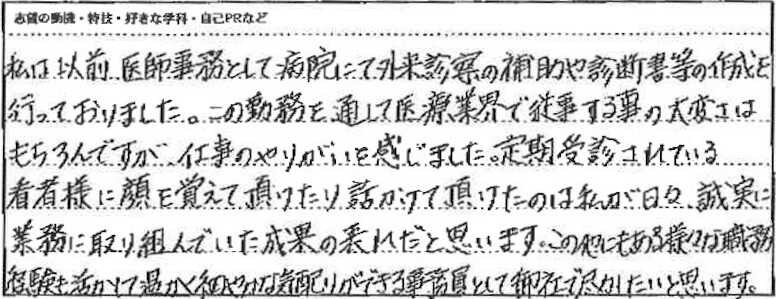 志望の動機・特技・好きな学科・自己PRなど
私は以前、医師事務として病院にて外来診察の補助や診断書等の作成を
行っておりました。この勤務を通して医療業界で従事する事の大変さは
もちろんですが、仕事のやりがいを感じました。定期受診されている
看者様に顔を覚えて頂けたり話かけて頂けたのは私が日々、誠実に
業務に取り組んでいた成果の表れだと思います。この他にもある様々な職務
経験も活かして温かく和やかな気配りができる事務員として御社で尽力したいと思います。